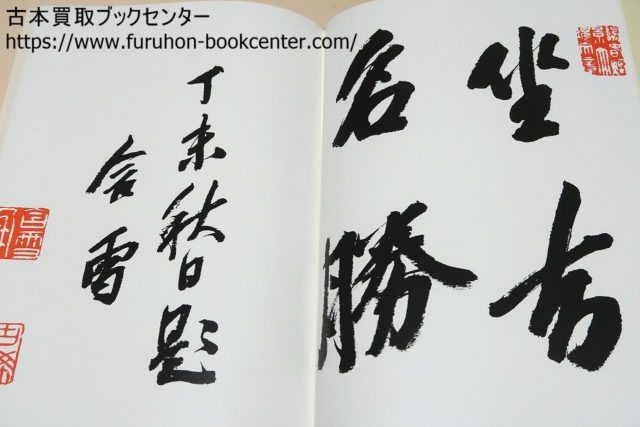 古本買取ブックセンター
https://www.furuhon-bookcenter.com/
坐右
名勝
丁未秋日題
含雪